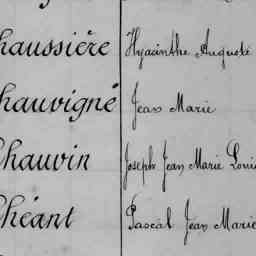 haussière Hyacinthe Auguste
hauvigné Jean Marie
hauvin Joseph Jean Marie Louis
héant Pascal Jean Marie